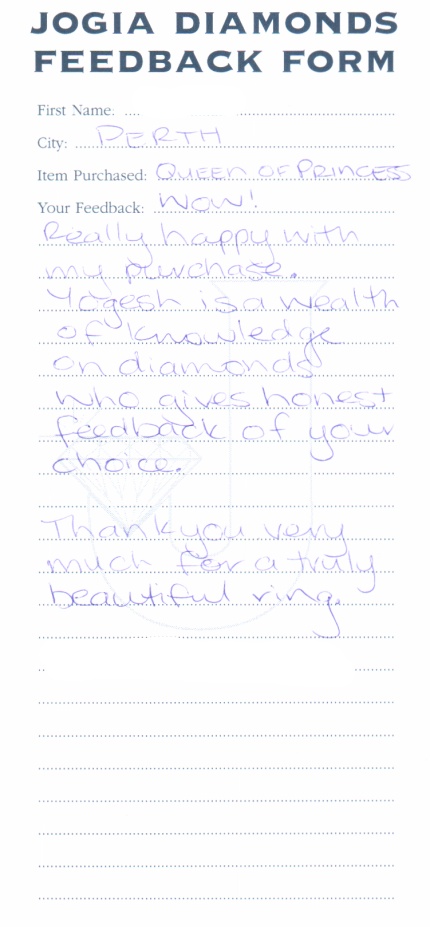 JOGIA DIAMONDS
FEEDBACK FORM
First Name:
City: PERTH
Item Purchased: QUEEN OF PRINCESS
Your Feedback: WOW!
Really happy with
my purchase.
Yogesh is a wealth
of knowledge
on diamonds
who gives honest
feedback of your
choice.
Thank you very
much for a truly
beautiful ring.